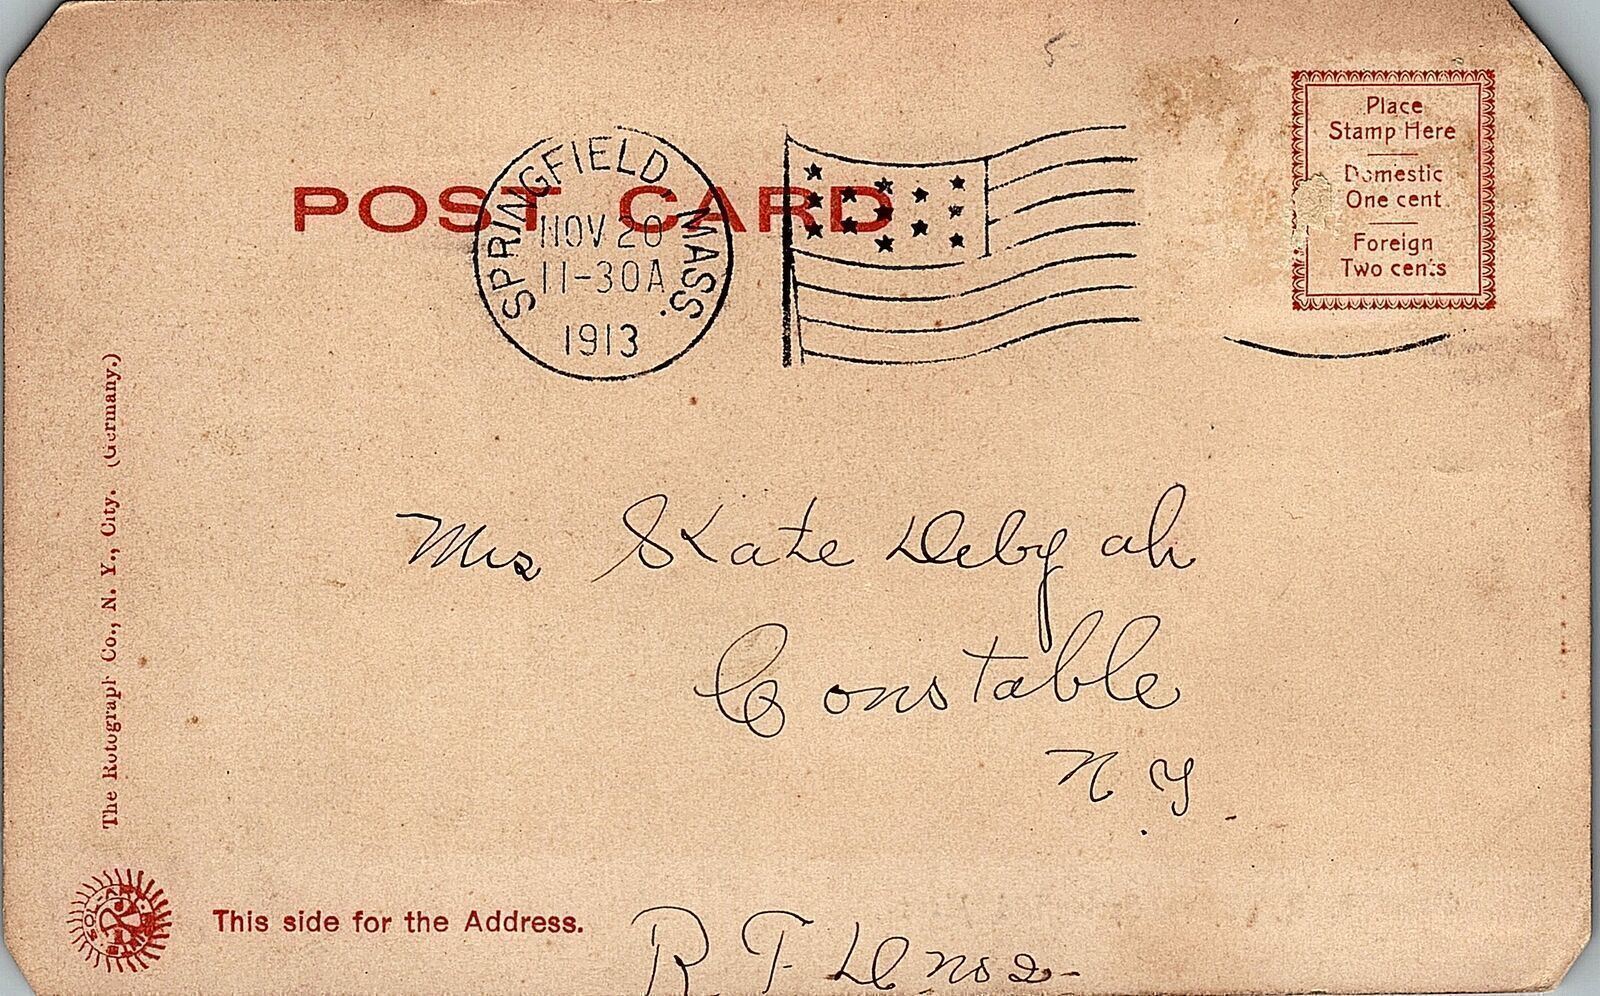 Place
Stamp Here
Domestic
One cent
Foreign
Two cents
POST CARD
SPRINGFIELD, MASS.
NOV 20
11-30A
1913
Mrs Kate Debyah
Constable
N. Y.
R F D No 2-
This side for the Address.
The Rotograph Co., N. Y., City. (Germany.)
SOL-ART